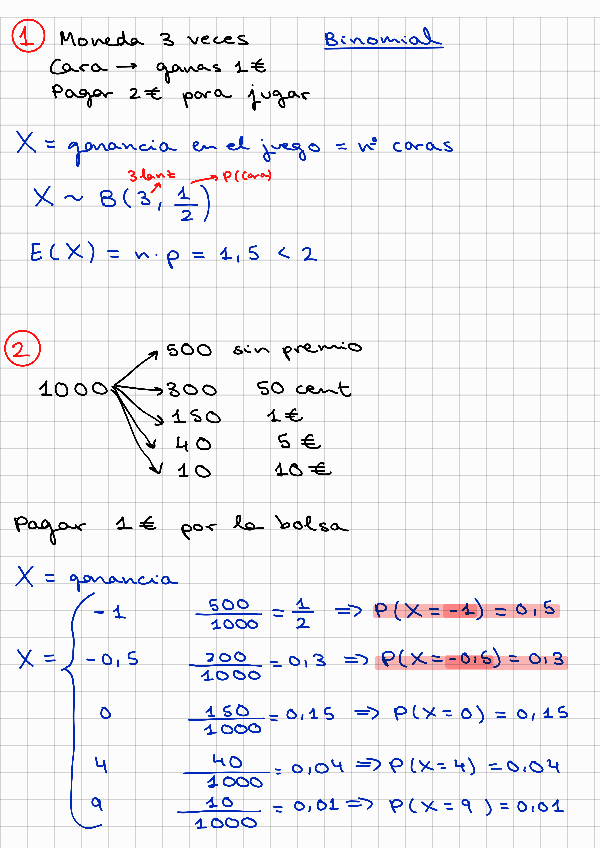 1 Moneda 3 veces Binomial
Cara → ganas 1€
Pagar 2€ para jugar
X = ganancia en el juego = nº caras
3 lanz P(cara)
X ~ B(3, 1/2)
E(X) = n · p = 1,5 < 2
2
500 sin premio
1000 300 50 cent
150 1€
40 5 €
10 10 €
Pagar 1€ por la bolsa
X = ganancia
-1 500/1000 = 1/2 => P(X = -1) = 0,5
X = { -0,5 300/1000 = 0,3 => P(X = -0,5) = 0,3
0 150/1000 = 0,15 => P(X = 0) = 0,15
4 40/1000 = 0,04 => P(X = 4) = 0,04
9 10/1000 = 0,01 => P(X = 9) = 0,01